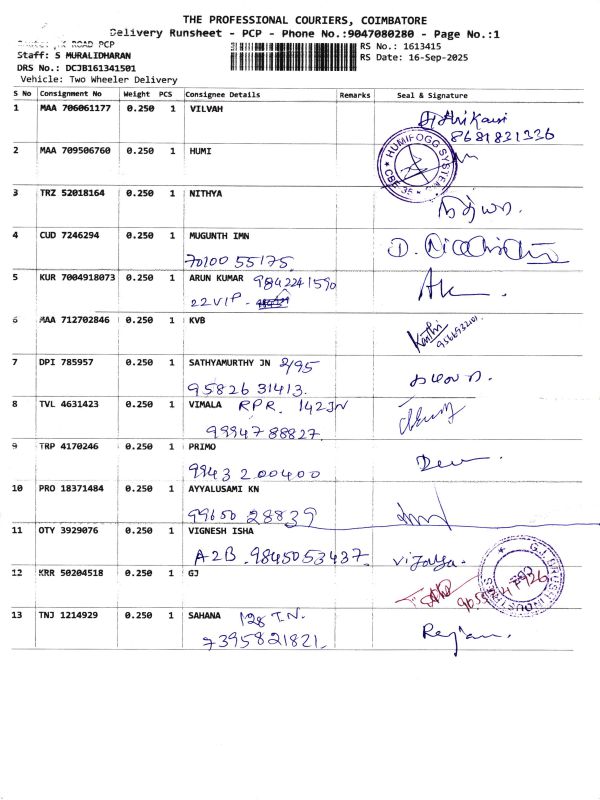 THE PROFESSIONAL COURIERS, COIMBATORE
Delivery Runsheet - PCP - Phone No.:9047080280 - Page No.:1
ROAD PCP
RS No.: 1613415
Staff: S MURALIDHARAN
RS Date: 16-Sep-2025
DRS No.: DCJB161341501
Vehicle: Two Wheeler Delivery
S No Consignment No Weight PCS Consignee Details Remarks Seal & Signature
1 MAA 706061177 0.250 1 VILVAH
8681831336
2 MAA 709506760 0.250 1 HUMI
HUMIFOGG SYSTEMS CBE-35
3 TRZ 52018164 0.250 1 NITHYA
4 CUD 7246294 0.250 1 MUGUNTH IMN
7010055175.
5 KUR 7004918073 0.250 1 ARUN KUMAR 9842241590
22 VIP -
6 MAA 712702846 0.250 1 KVB
Karthi
7 DPI 785957 0.250 1 SATHYAMURTHY JN 2/95
9582631413.
8 TVL 4631423 0.250 1 VIMALA RPR. 142JN
9994788827.
9 TRP 4170246 0.250 1 PRIMO
9943200400
10 PRO 18371484 0.250 1 AYYALUSAMI KN
9965028839
11 OTY 3929076 0.250 1 VIGNESH ISHA
A2B . 9845053437. Vijaya.
12 KRR 50204518 0.250 1 GJ
13 TNJ 1214929 0.250 1 SAHANA 128 IN.
7395821821.